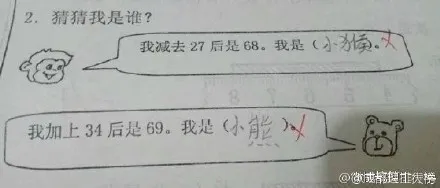 2. 猜猜我是谁?
我减去 27 后是 68。我是(小猴)。
我加上 34 后是 69。我是(小熊)。